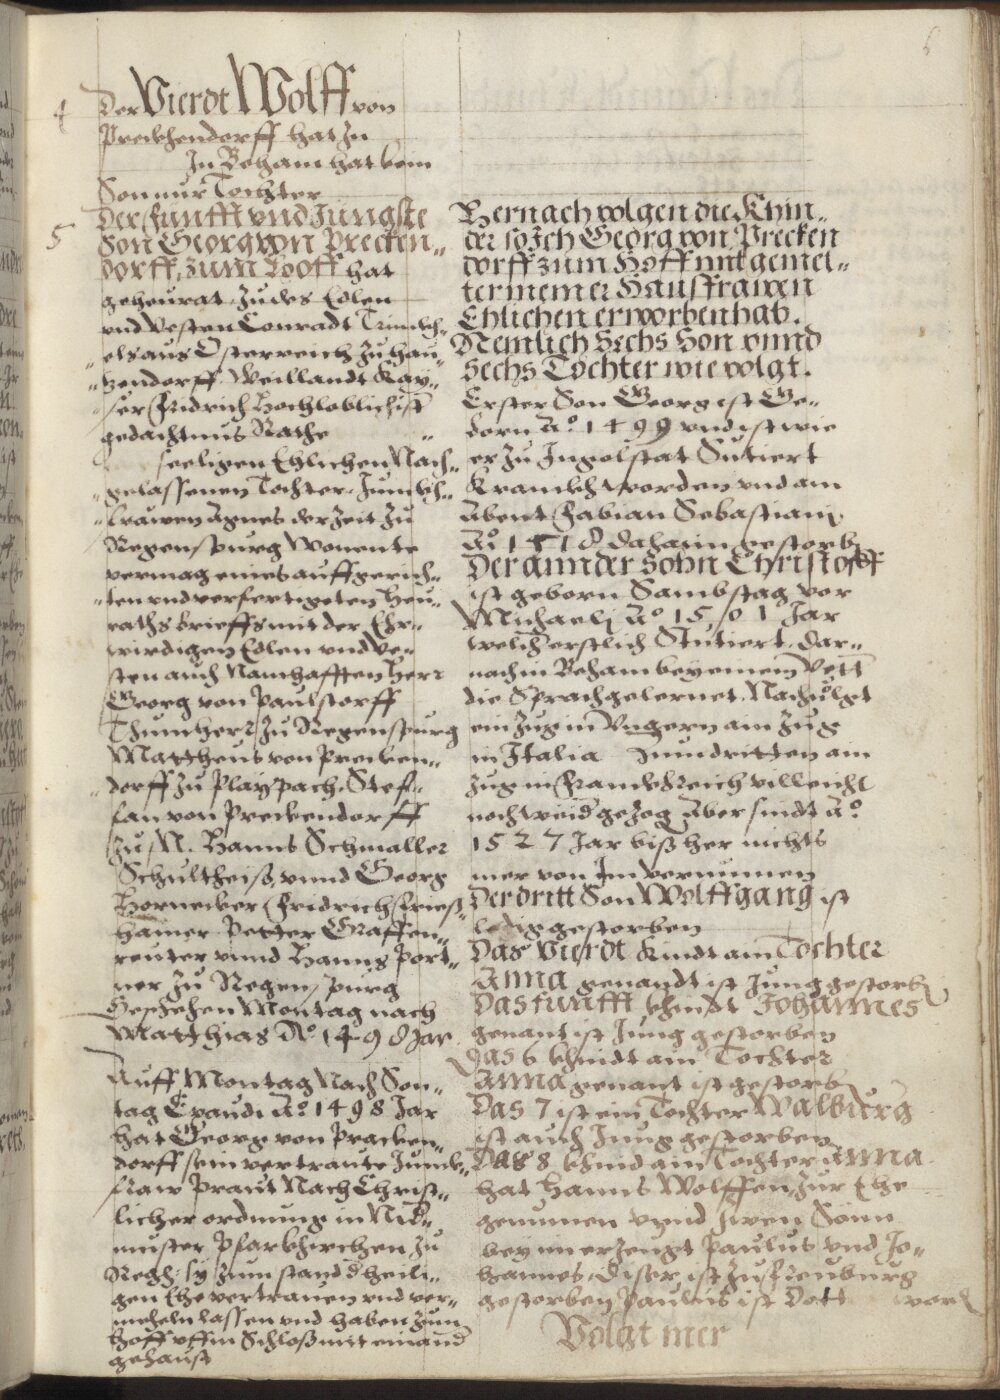 6
4 Der Vierdt Wolff von
Preckhendorff hat zu
In Beham hat kein
Son nur Töchter
5 Der funfft und Jungste
Son Georg von Precken-
dorff, zum Hoff hat
geheurat zu des Edlen
und Vesten Conradt
els aus Osterreich zu Hau-
zendorff Weillandt Kay-
ser Fridrich hochloblichist
gedachtnus Rathe
seeligen Ehlichen Nach-
gelassenen Tochter Junckh-
frawen Agnes der Zeit zu
Regenspurg Wonente
vermag eines auffgerich-
ten und verfertigeten heu-
rathsbrieffs mit der Ehr-
wirdigen Edlen und Ve-
sten auch Namhafften Herr
Georg von Paulstorff
Thumherr zu Regenspurg
Mattheus von Precken-
dorff zu Playspach, Stef-
fan von Preckendorff
zu N. Hanns Schmaller
Schultheiß, unnd Georg
Hornecker Fridrich
hamer Petter Graffen-
reuter unnd Hanns Port-
ner zu Regenspurg
Geschehen Montag nach
Matthias Aº 1498 Jar
Auff Montag Nach Son-
tag Exaudi Aº 1498 Jar
hat Georg von Pracken-
dorff sein vertraute Junck-
fraw Praut Nach Christ-
licher ordnung in Nid-
munster Pfarkhirchen zu
zum stand d heili-
gen Ehe vertrauen und ver-
meheln lassen und haben zum
hoff uffm Schloß mit einand
gehaust
Hernach volgen die Khin-
der so Ich Georg von Precken
dorff zum Hoff mit gemel-
ter meiner Hausfrawen
Ehlichen erworben hab.
Nemlich Sechs Son unnd
Sechs Tochter wie volgt.
Erster Son Georg ist Ge-
born Aº 1499 und ist wie
er zu Ingolstat Sutiert
Kranckh worden und am
Abent Fabian Sebastiani
Aº 1518 dahaim gestorb
Der annder Sohn Christoff
ist geborn Sambstag vor
Michaeli Aº 1501 Jar
welch erstlich Stutiert, dar-
nach in Beham bey einem Vett
die Sprach gelernet. Nachvolgt
ein Zug in Ungern ain Zug
in Italia zum dritten ain
Zug in Franckhreich villeicht
noch weid gezog Aber sindt Aº
1527 Jar biß her nichts
mer von Im vernumen
Der dritt Son Wolffgang ist
ledig gestorben
Das Vierdt Kindt ain Tochter
Anna genandt ist Jung gestorb
Das funfft khindt Johannes
genant ist Jung gestorben
Das 6 khindt ain Tochter
Anna genant ist gestorb
Das 7 ist ein Tochter Walburg
ist auch Jung gestorben
Das 8 khind ain Tochter Anna
hat Hanns Wolffen zur Ehe
genumen unnd zwen Sönn
bey im erzeugt Paulus und Jo-
hannes. Diser ist zu Neuburg
gestorben Paulus ist Dott word
Volgt mer